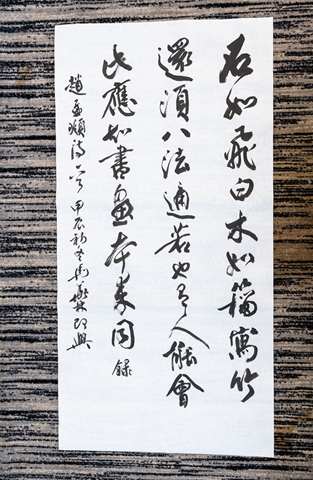 石如飛白木如籀寫竹
還須八法通若也有人能會
此應知書畫本來同 錄
趙孟頫詩 甲辰 即興